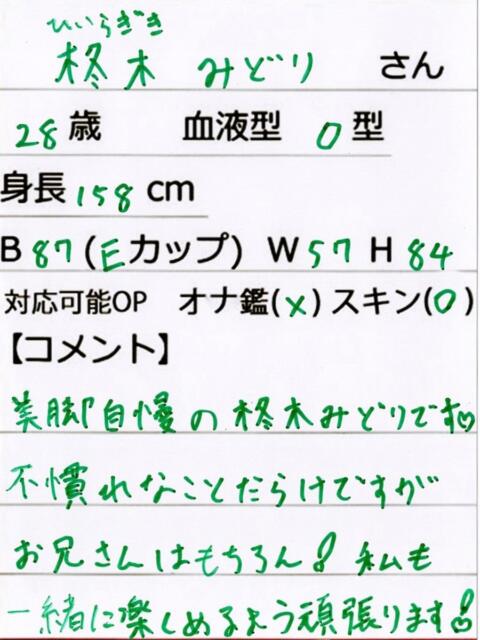 ひいらぎき
柊木 みどり さん
28歳 血液型 O型
身長158cm
B 87(Eカップ) W57 H 84
対応可能OP オナ鑑(×) スキン(○)
【コメント】
美脚自慢の柊木みどりです♡
不慣れなことだらけですが
お兄さんはもちろん!私も
一緒に楽しめるよう頑張ります!